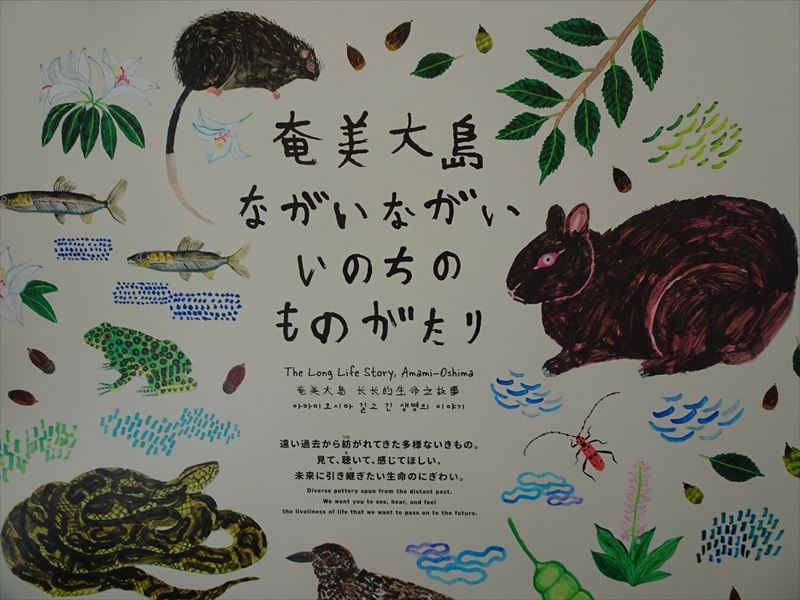 奄美大島
ながいながい
いのちの
ものがたり
The Long Life Story, Amami-Oshima
奄美大島 长长的生命之故事
아마미오시마 길고 긴 생명의 이야기
遠い過去から紡がれてきた多様ないきもの。
見て、聴いて、感じてほしい、
未来に引き継ぎたい生命のにぎわい。
Diverse pottery spun from the distant past.
We want you to see, hear, and feel
the liveliness of life that we want to pass on to the future.